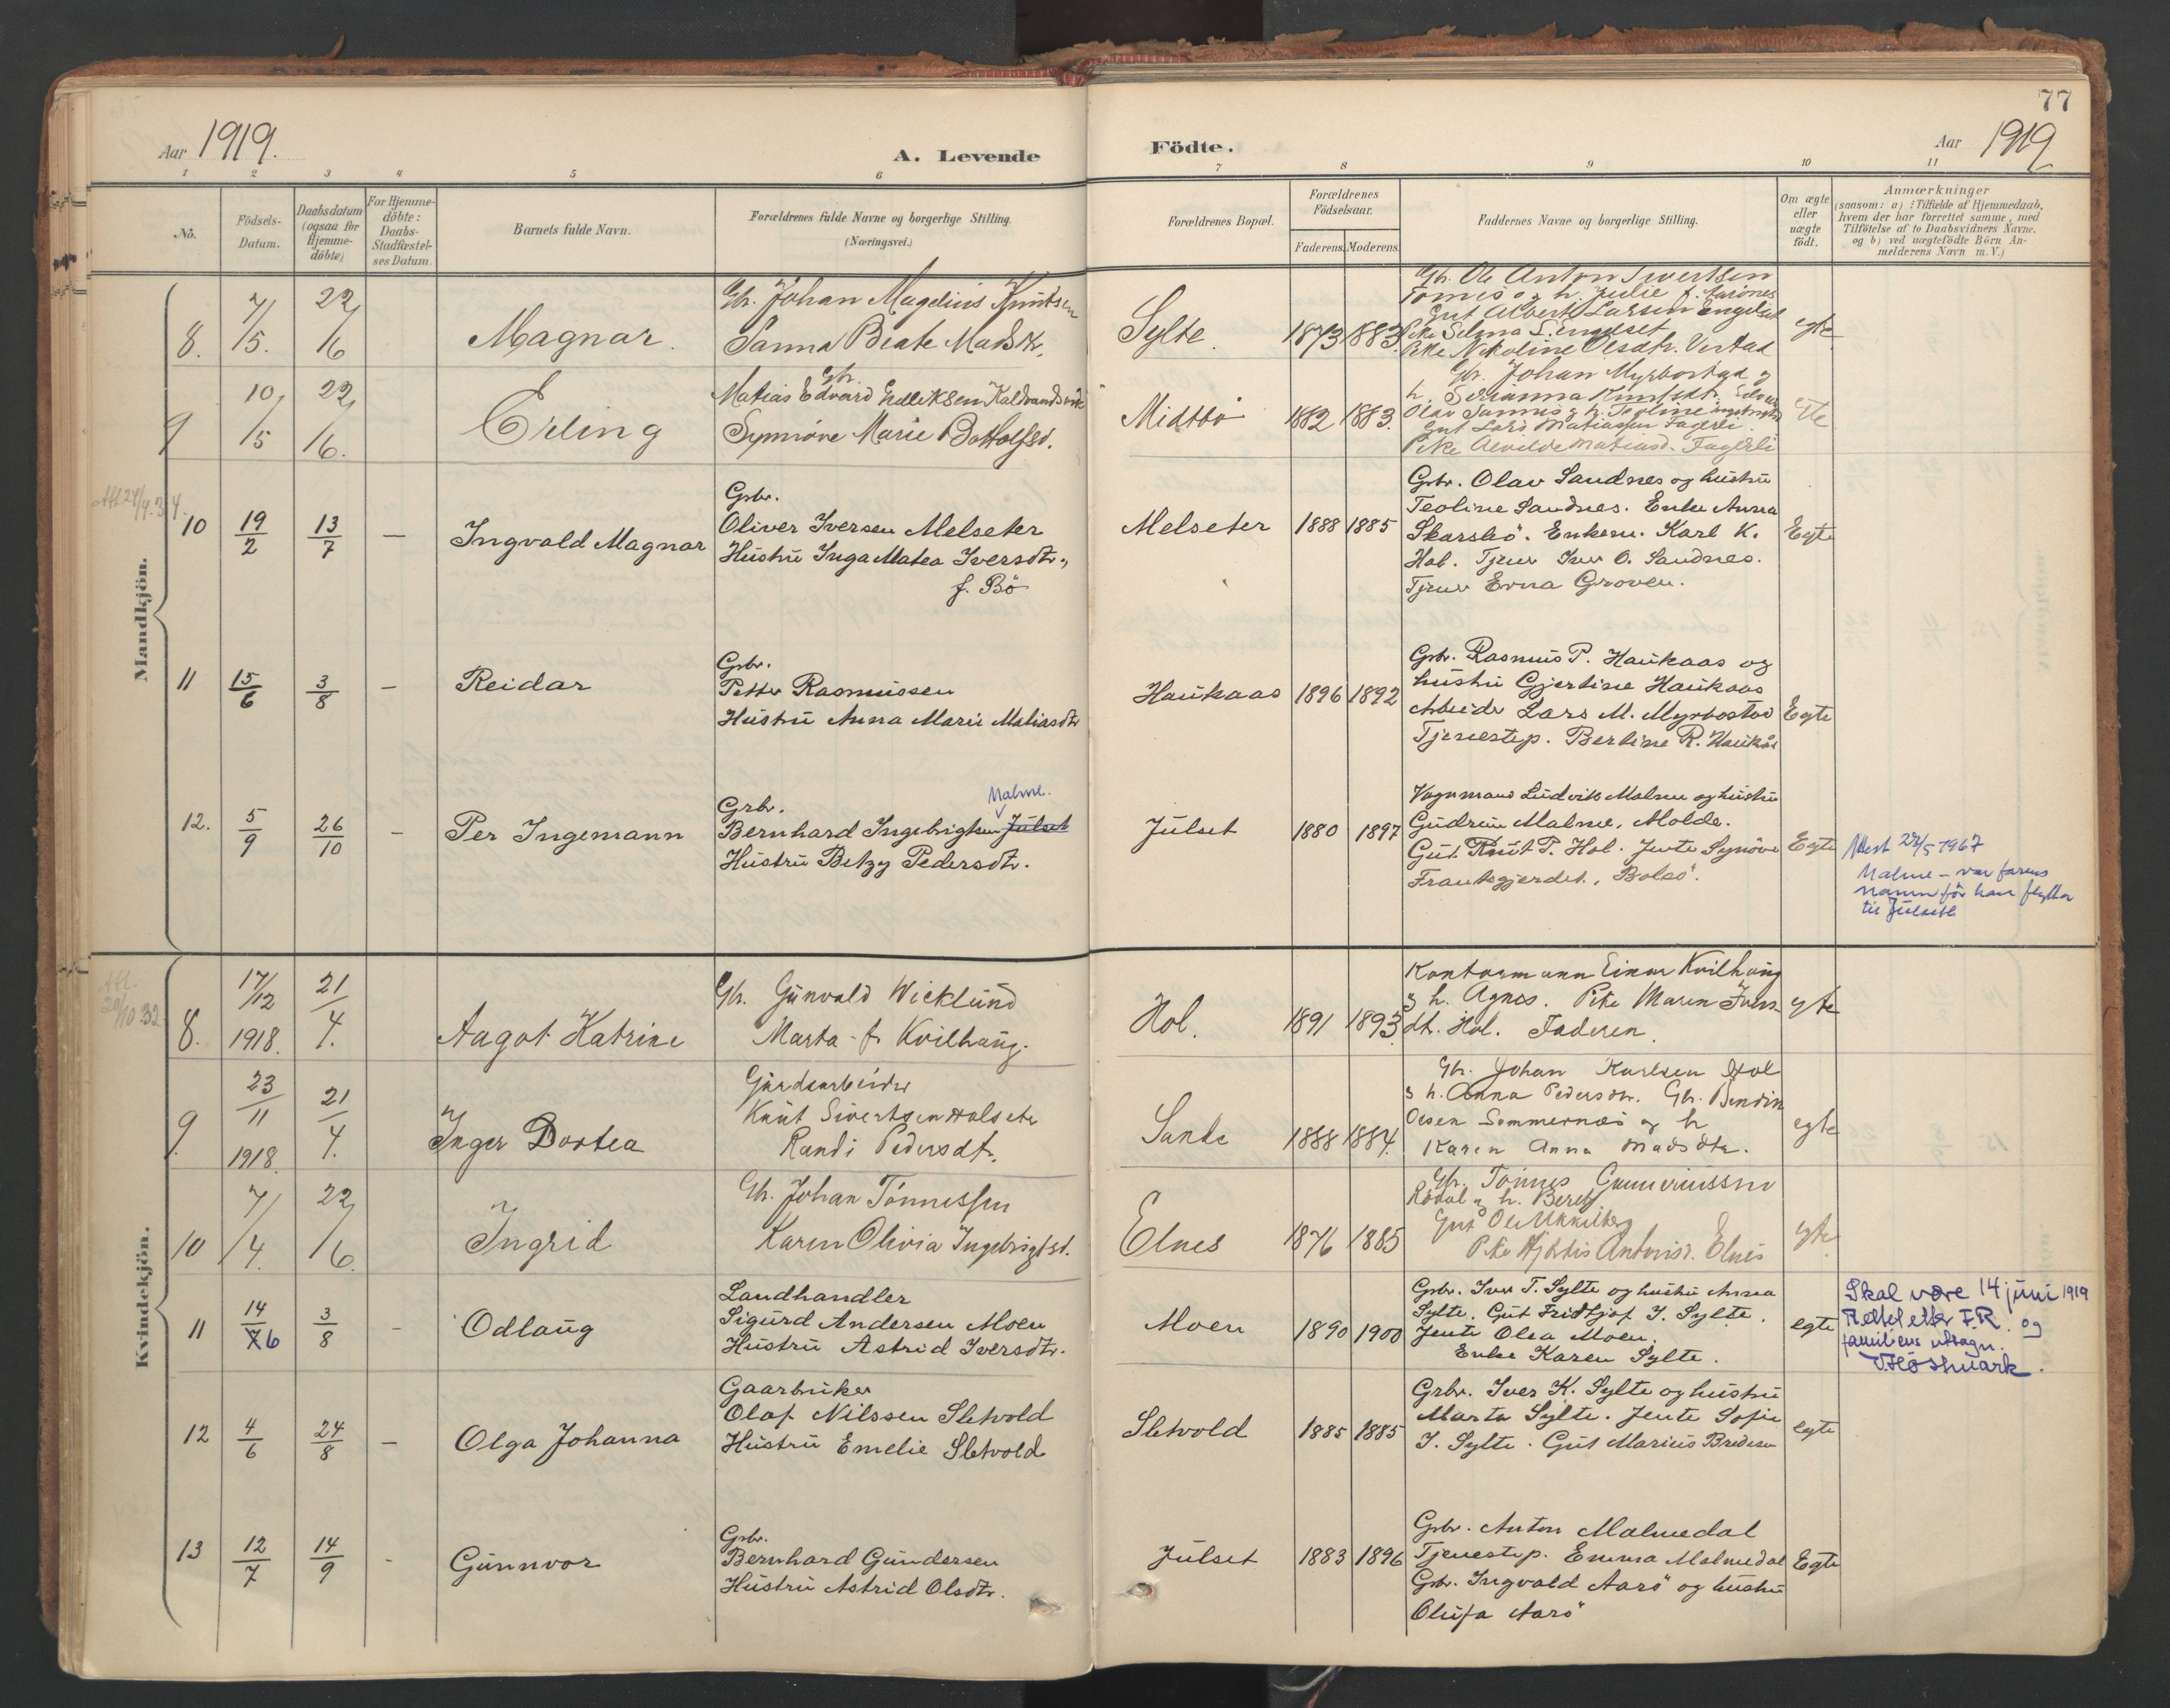 77
Aar 1919.
A. Levende
Födte.
Aar 1919
1 2 3 4 5 6 7 8 9 10 11
No.
Födsels-Datum.
Daabsdatum (ogsaa for Hjemme-döbte)
For Hjemme-döbte: Daabs-Stadfæstel-ses Datum.
Barnets fulde Navn.
Forældrenes fulde Navne og borgerlige Stilling.
(Næringsvei.)
Forældrenes Bopæl.
Forældrenes Födselsaar.
Faderens. Moderens.
Faddernes Navne og borgerlige Stilling.
Om ægte eller uægte födt.
Anmærkninger
(saasom: a) i Tilfælde af Hjemmedaab,
hvem der har forrettet samme, med
Tilföielse af to Daabsvidners Navne.
og b) ved uægtefödte Börn An-
melderens Navn m. V.)
Mandkjön.
8. 7/5. 22/6 Magnar.
Gb. Johan Magelius Knutsen
Sanna Beate Madsdtr.
Sylte. 1873 1883
Gb. Ole Anton Sivertsen
Tornes og h. Julie
Gut Albert Larsen Engeset
Pike Selma L. Engeset
Pike Nikoline Olsdtr. Verstad
egte
9 10/5 22/6. Erling
Gb.
Matias Edvard Kaldvandsvik
Synnöve Marie Bottolfsd.
Midtbö 1882 1883.
Gb. Johan Myrbostad og
h. Serianna Knutsdt.
Olav Sannes og h. Teoline
Gut Lars Matiassen Fagerli.
Pike Matiasd. Fagerli
egte
10 19/2 13/7 — Ingvald Magnar
Grbr.
Oliver Iversen Melseter
Hustru Inga Matea Iversdtr.,
f. Bö
Melseter 1888 1885
Grbr. Olav Sandnes og hustru
Teoline Sandnes. Enke Anna
Skarsbö. Enkem. Karl K.
Hol. Tjener Iver O. Sandnes.
Tjener Erna Groven.
Egte
11 15/6 3/8 — Reidar
Grbr.
Petter Rasmussen
Hustru Anna Marie Matiasdtr
Haukaas 1896 1892
Grbr. Rasmus P. Haukaas og
hustru Gjertine Haukaas
Arbeider Lars M. Myrbostad
Tjenestep. Bertine R. Haukås
Egte
12. 5/9 26/10 — Per Ingemann
Grbr. Malme.
Bernhard Ingebrigtsen Julset
Hustru Betzy Pedersdtr.
Julset 1880 1897
Vognmand Ludvik Malme og hustru
Gudrun Malme, Molde.
Gut Knut P. Hol. Jente Synöve
Frantsgjerdet, Bolsö.
Egte
Attest 22/5 1967
Malme – var farens
namn för han flytta
til Julset
Kvindekjön.
8. 17/12 1918. 21/4. Aagot Katrine
Gb. Gunvald Wicklund
Marta f. Kvilhaug.
Hol. 1891 1893
Kontormann Einar Kvilhaug
og h. Agnes. Pike Maren Ivers
dt. Hol. Faderen.
egte
9. 23/11 1918. 21/4. Inger Dortea
Gårdsarbeider
Knut Sivertsen Halseter
Randi Pedersdt.
Sande 1888 1884.
Gb. Johan Karlsen Hol
og h. Anna Pedersdtr. Gb. Bendik
Olsen Sommernes og h
Karen Anna Madsdtr.
egte
10 7/4. 22/6 Ingrid
Gb. Johan Tönnessen
Karen Olivia Ingebrigtsd.
Elnes 1876 1885
Gb. Tönnes Gunneriussen
Rödal og h. Beret
Gut Ole
Pike Hjördis Antonsd. Elnes
egte
11 14/7 6 3/8 - Odlaug
Landhandler
Sigurd Andersen Moen
Hustru Astrid Iversdtr.
Moen 1890 1900
Grbr. Iver T. Sylte og hustru Anna
Sylte. Gut Fridtjof I. Sylte.
Jente Olea Moen.
Enke Karen Sylte.
egte
Skal være 14 juni 1919
Rettet etter F.R. og
familiens utsagn.
12 4/6 24/8 — Olga Johanna
Gaarbruker
Olaf Nilssen Sletvold
Hustru Emelie Sletvold
Sletvold 1885 1885
Grbr. Iver K. Sylte og hustru
Marta Sylte. Jente Sofie
I. Sylte. Gut Marius Bredesen
egte
13 12/7 14/9 - Gunnvor
Grbr.
Bernhard Gundersen
Hustru Astrid Olsdtr.
Julset 1883 1896
Grbr. Anton Malmedal
Tjenestep. Emma Malmedal
Grbr. Ingvald Aarö og hustru
Olufa Aarö
Egte